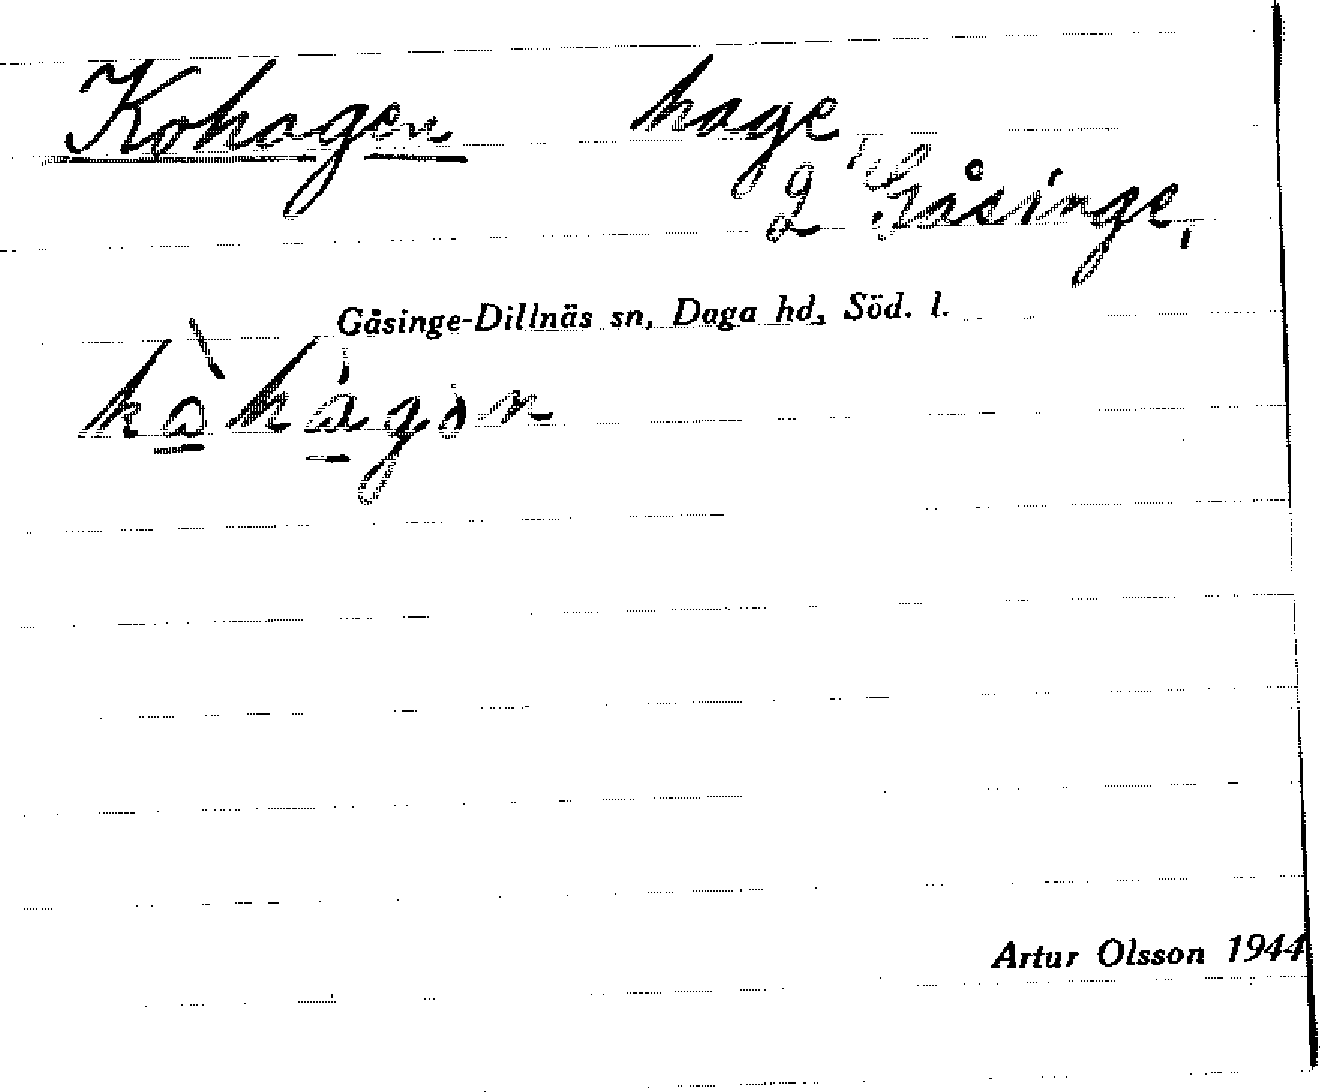 Kohagen hage
2 Gåsinge,
Gåsinge-Dillnäs sn, Daga hd, Söd. l.
Artur Olsson 1944